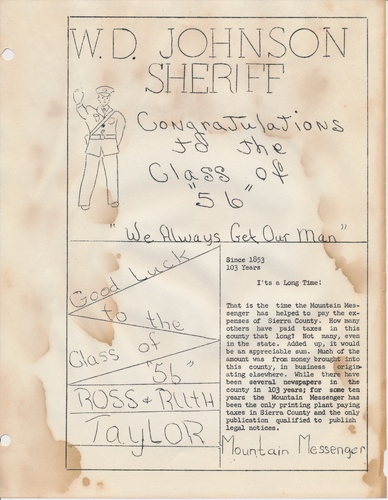 W.D. JOHNSON
SHERIFF
Congratulations
to the
Class of
"56"
"We Always Get Our Man"
Good Luck
to the
Class of
"56"
ROSS & RUTH
TAYLOR
Since 1853
103 Years
It's a Long Time!
That is the time the Mountain Mes-
senger has helped to pay the ex-
penses of Sierra County. How many
others have paid taxes in this
county that long? Not many, even
in the state. Added up, it would
be an appreciable sum. Much of the
amount was from money brought into
this county, in business origin-
ating elsewhere. While there have
been several newspapers in the
county in 103 years; for some ten
years the Mountain Messenger has
been the only printing plant paying
taxes in Sierra County and the only
publication qualified to publish
legal notices.
Mountain Messenger